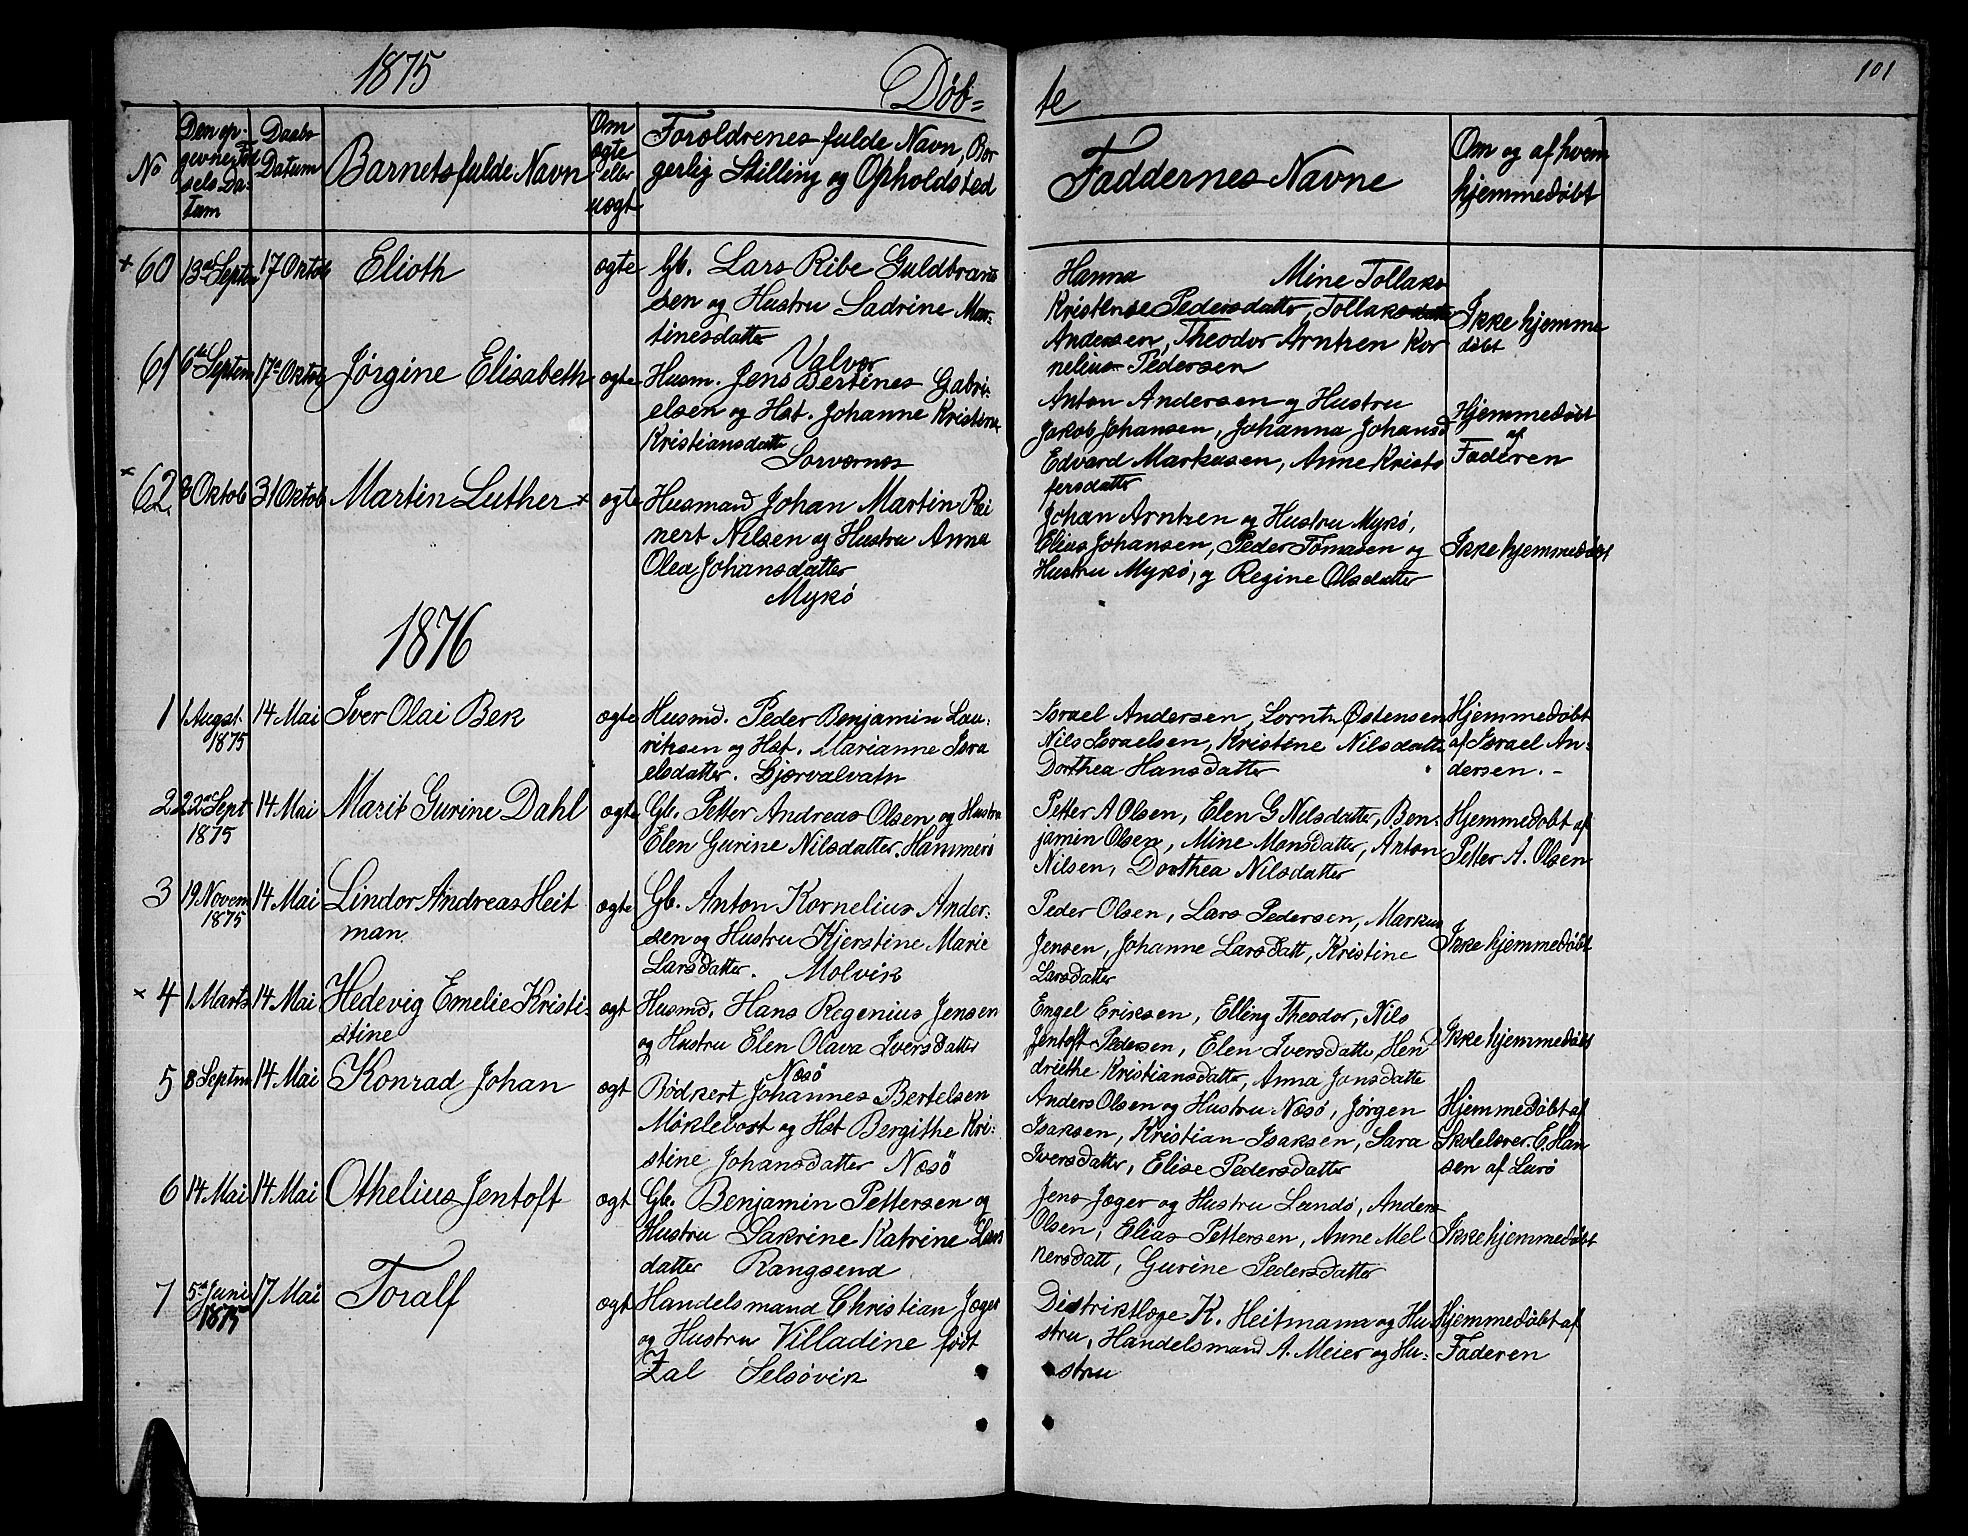 1875
Døb=
te
101
No
Den op-
givne Fød
sels Da-
tum
Daabs
Datum
Barnets fulde Navn
Om
ægte
eller
uægt
Forældrenes fulde Navn, Bor
gerlig Stilling og Opholdsted
Faddernes Navne
Om og af hvem
hjemmedøbt
+ 60 13de Septbr 17 Oktob Elioth ægte
Gb. Lars Ribe Guldbrand
sen og Hustru Sadrine Mar-
tinesdatter
Valvær
Hanna Mine Tollaks
Kristense Pedersdatter, Tollaksdatter
Andersen, Theodor Arntzen Kor
nelius Pedersen
Ikke hjemme
døbt
61 6te Septem 17de Oktob Jørgine Elisabeth ægte
Husm. Jens Bertines Gabri-
elsen og Hst. Johanne Kristine
Kristiansdatte
Sørværnes
Anton Andersen og Hustru
Jakob Johansen, Johanna Johansd
Edvard Markusen, Anne Kristo
fersdatter
Hjemmedøbt
af
Faderen
× 62. 8 Oktob 31 Oktob Martin Luther × ægte
Husmand Johan Martin Rei
nert Nilsen og Hustru Anna
Olea Johansdatter
Mykø
Johan Arntzen og Hustru Mykø,
Elias Johansen, Peder Tomasen og
Hustru Mykø, og Regine Olsdatter
Ikke hjemmedøbt
1876
1 1 Augst 14 Mai Iver Olai Bek ægte
1875
Husmd. Peder Benjamin Lau-
riksen og Hst. Marianne Isra
elsdatter. Gjervalvatn
Israel Andersen, Lorntz Østensen
Nils Israelsen, Kristine Nilsdatte
Dorthea Hansdatter
Hjemmedøbt
af Israel An-
dersen. -
2 22de Sept 14 Mai Marit Gurine Dahl ægte
1875
Gb. Petter Andreas Olsen og Hustru
Elen Gurine Nilsdatter. Hammerø
Petter A Olsen, Elen G Nilsdatter, Ben-
jamin Olsen, Mine Monsdatter, Anton
Nilsen, Dorthea Nilsdatter
Hjemmedøbt af
Petter A. Olsen
3 19 Novem 14 Mai Lindor Andreas Heit
1875
man. ægte
Gb. Anton Kornelius Ander-
sen og Hustru Kjerstine Marie
Larsdatter. Molvik
Peder Olsen, Lars Pedersen, Markus
Jensen, Johanne Larsdatt, Kristine
Larsdatter
Ikke hjemmedøbt
× 4 1 Marts 14 Mai Hedevig Emelie Kristi-
stine ægt
Husmd. Hans Regenius Jensen
og Hustru Elen Olava Iversdatter
Næsø
Engel Eriksen, Elling Theodor, Nils
Jentoft Pedersen, Elen Iversdatte, Hen
driethe Kristiansdatter, Anna Jonsdatte
Ikke hjemmedøbt
5 8 Septm 14 Mai Konrad Johan ægt
Bødkert Johannes Bertelsen
Møklebost og Hst Bergithe Kri-
stine Johansdatter Næsö
Anders Olsen og Hustru Næsø, Jørgen
Isaksen, Kristian Isaksen, Sara
Iversdatter, Elise Pedersdatter
Hjemmedøbt af
Skolelærer E. Han
sen af Lurø
6 14 Mai 14 Mai Othelius Jentoft ægt
Gb. Benjamin Pettersen og
Hustru Sakrine Katrine
datter Rangsund
Jens Jæger og Hustru Lundø, Anders
Olsen, Elias Pettersen, Anne Mel
kersdatt, Gurine Pedersdatter
Ikke hjemmedøbt
7 5te Juni 17 Mai Toralf ægt
1875
Handelsmand Christian Jæger
og Hustru Villadine født
Zal Selsövik
Distriktlæge K. Heitmann og Hu
stru, Handelsmand A. Meier og Hu-
stru
Hjemmedøbt af
Faderen